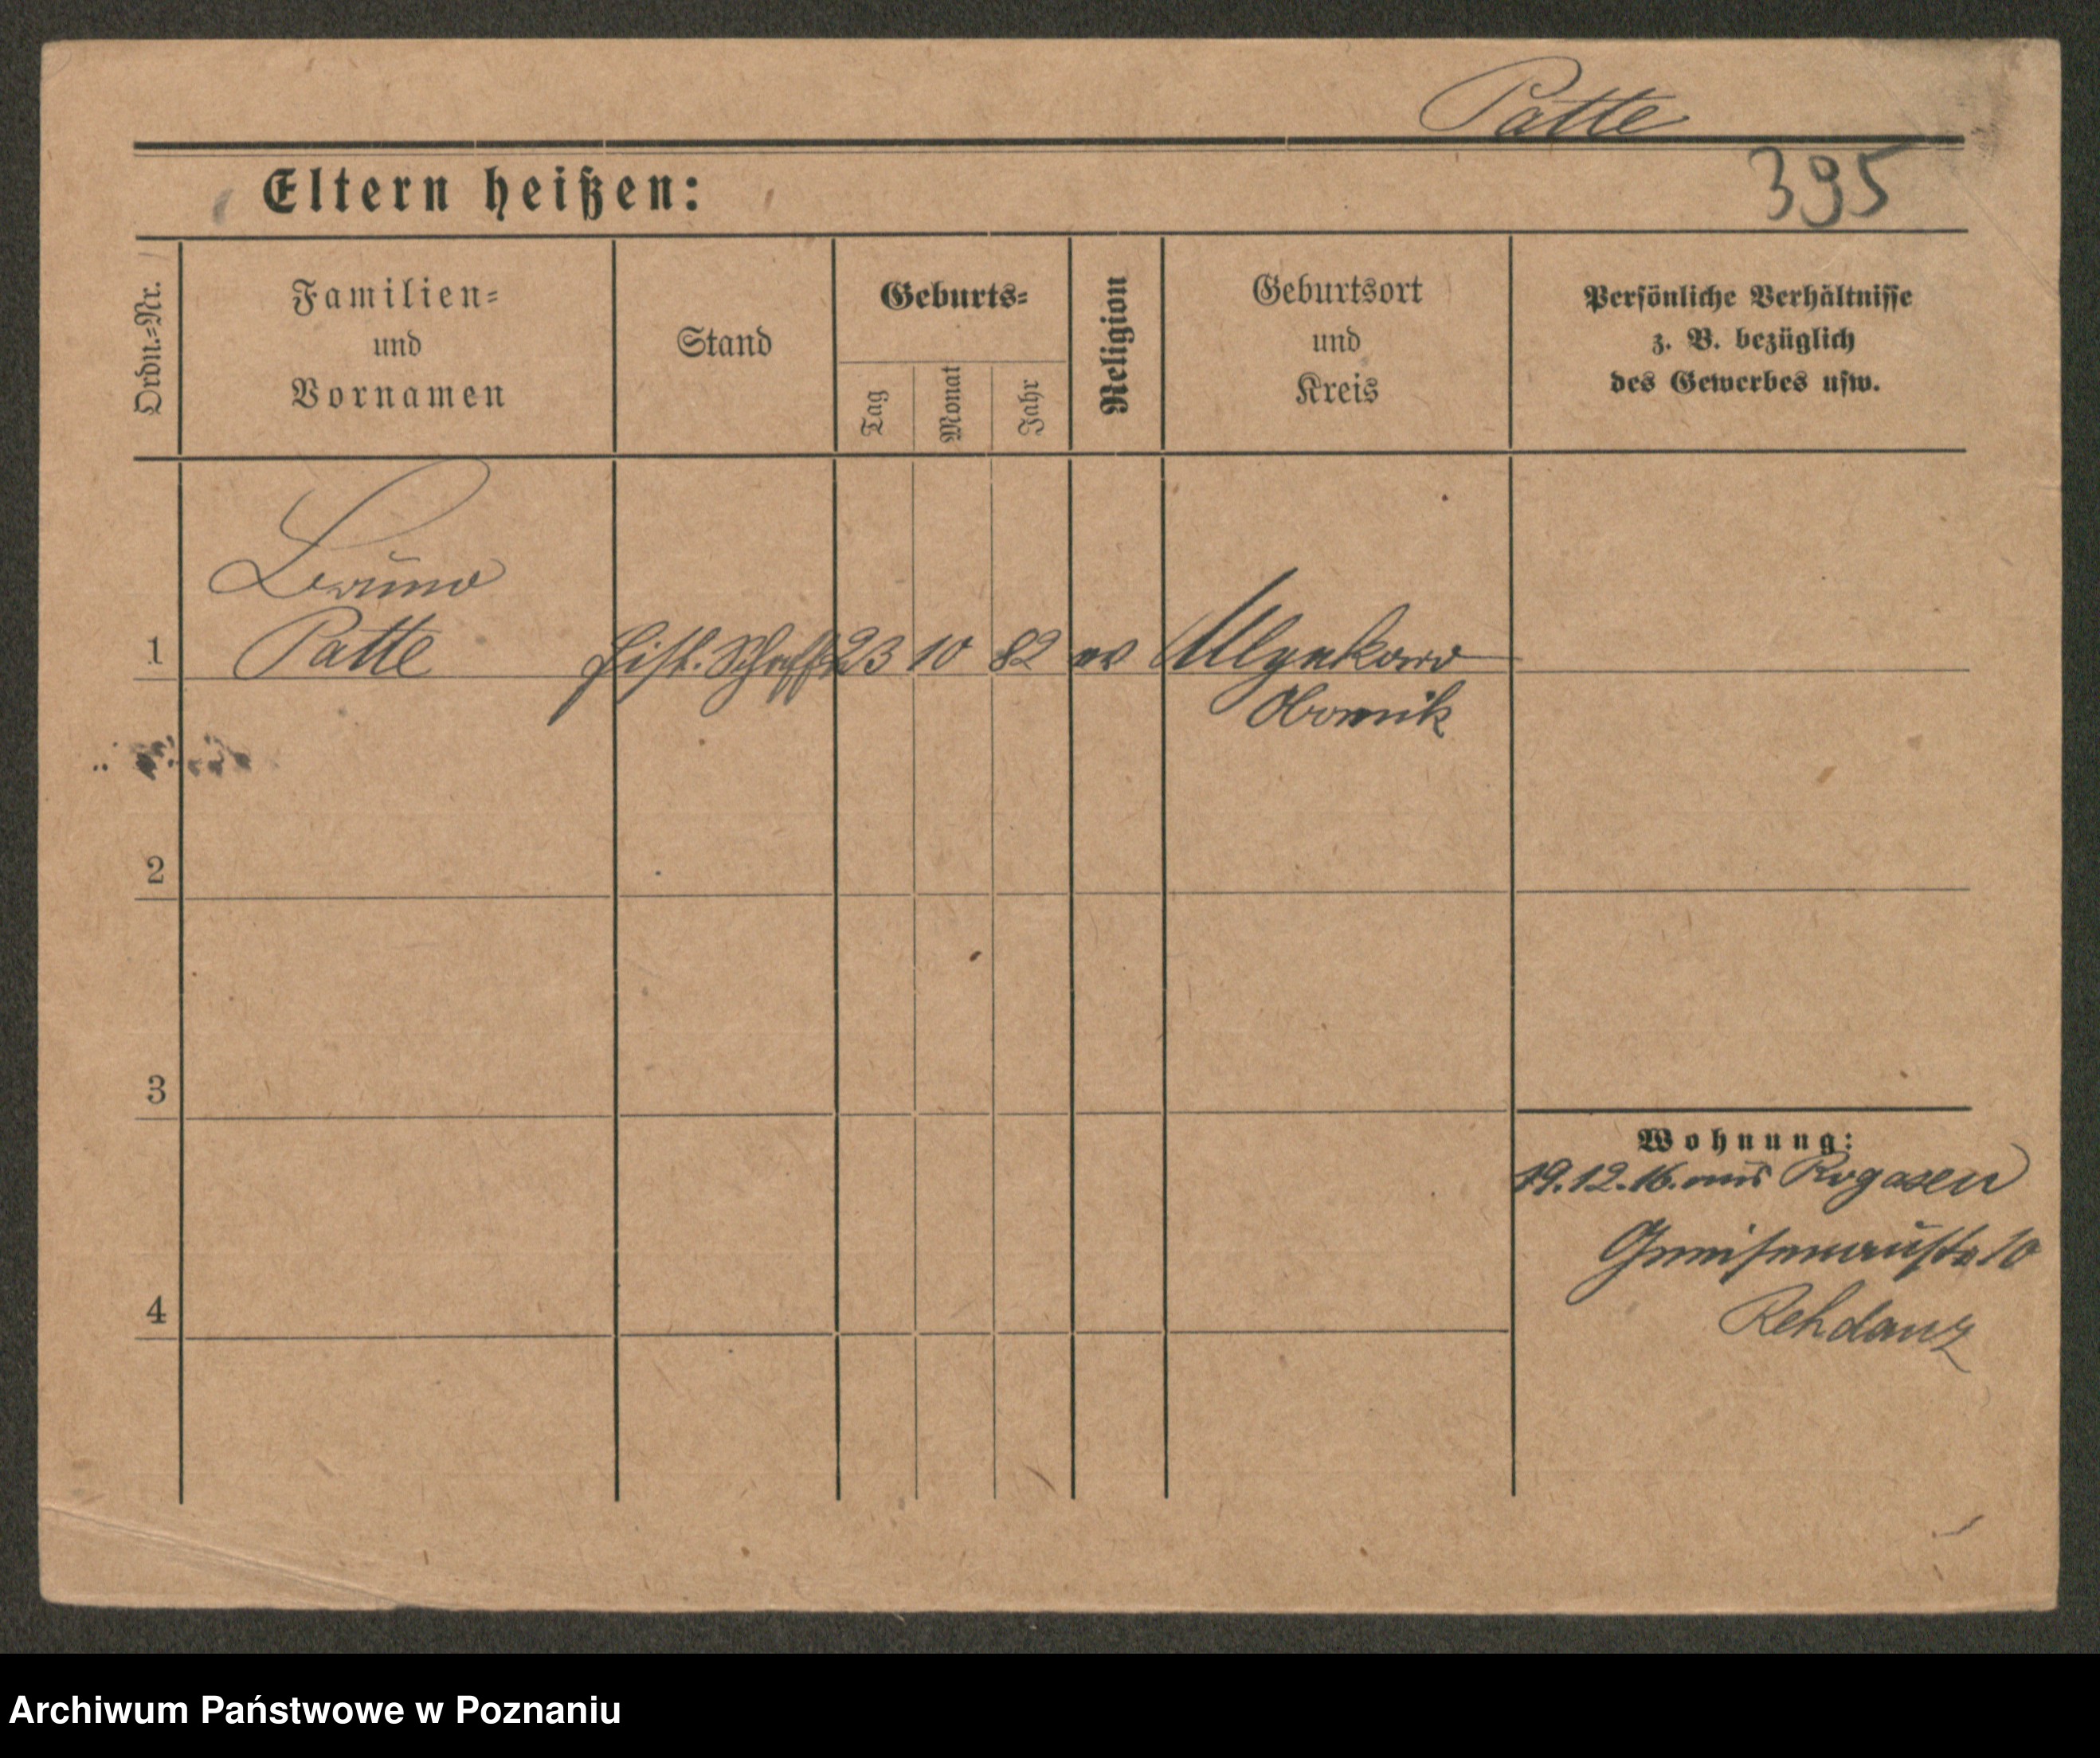 Patte
Eltern heißen:
395
Ordn.=Nr.
Familien=
und
Vornamen
Stand
Geburts=
Tag
Monat
Jahr
Religion
Geburtsort
und
Kreis
Persönliche Verhältnisse
z. B. bezüglich
des Gewerbes usw.
Bruno
1 Patte 23 10 82 ev Mlynkowo
Obornik
2
3
Wohnung:
19.12.16. aus Rogasen
Gneisenaustr 10
4
Rehdanz
Archiwum Państwowe w Poznaniu